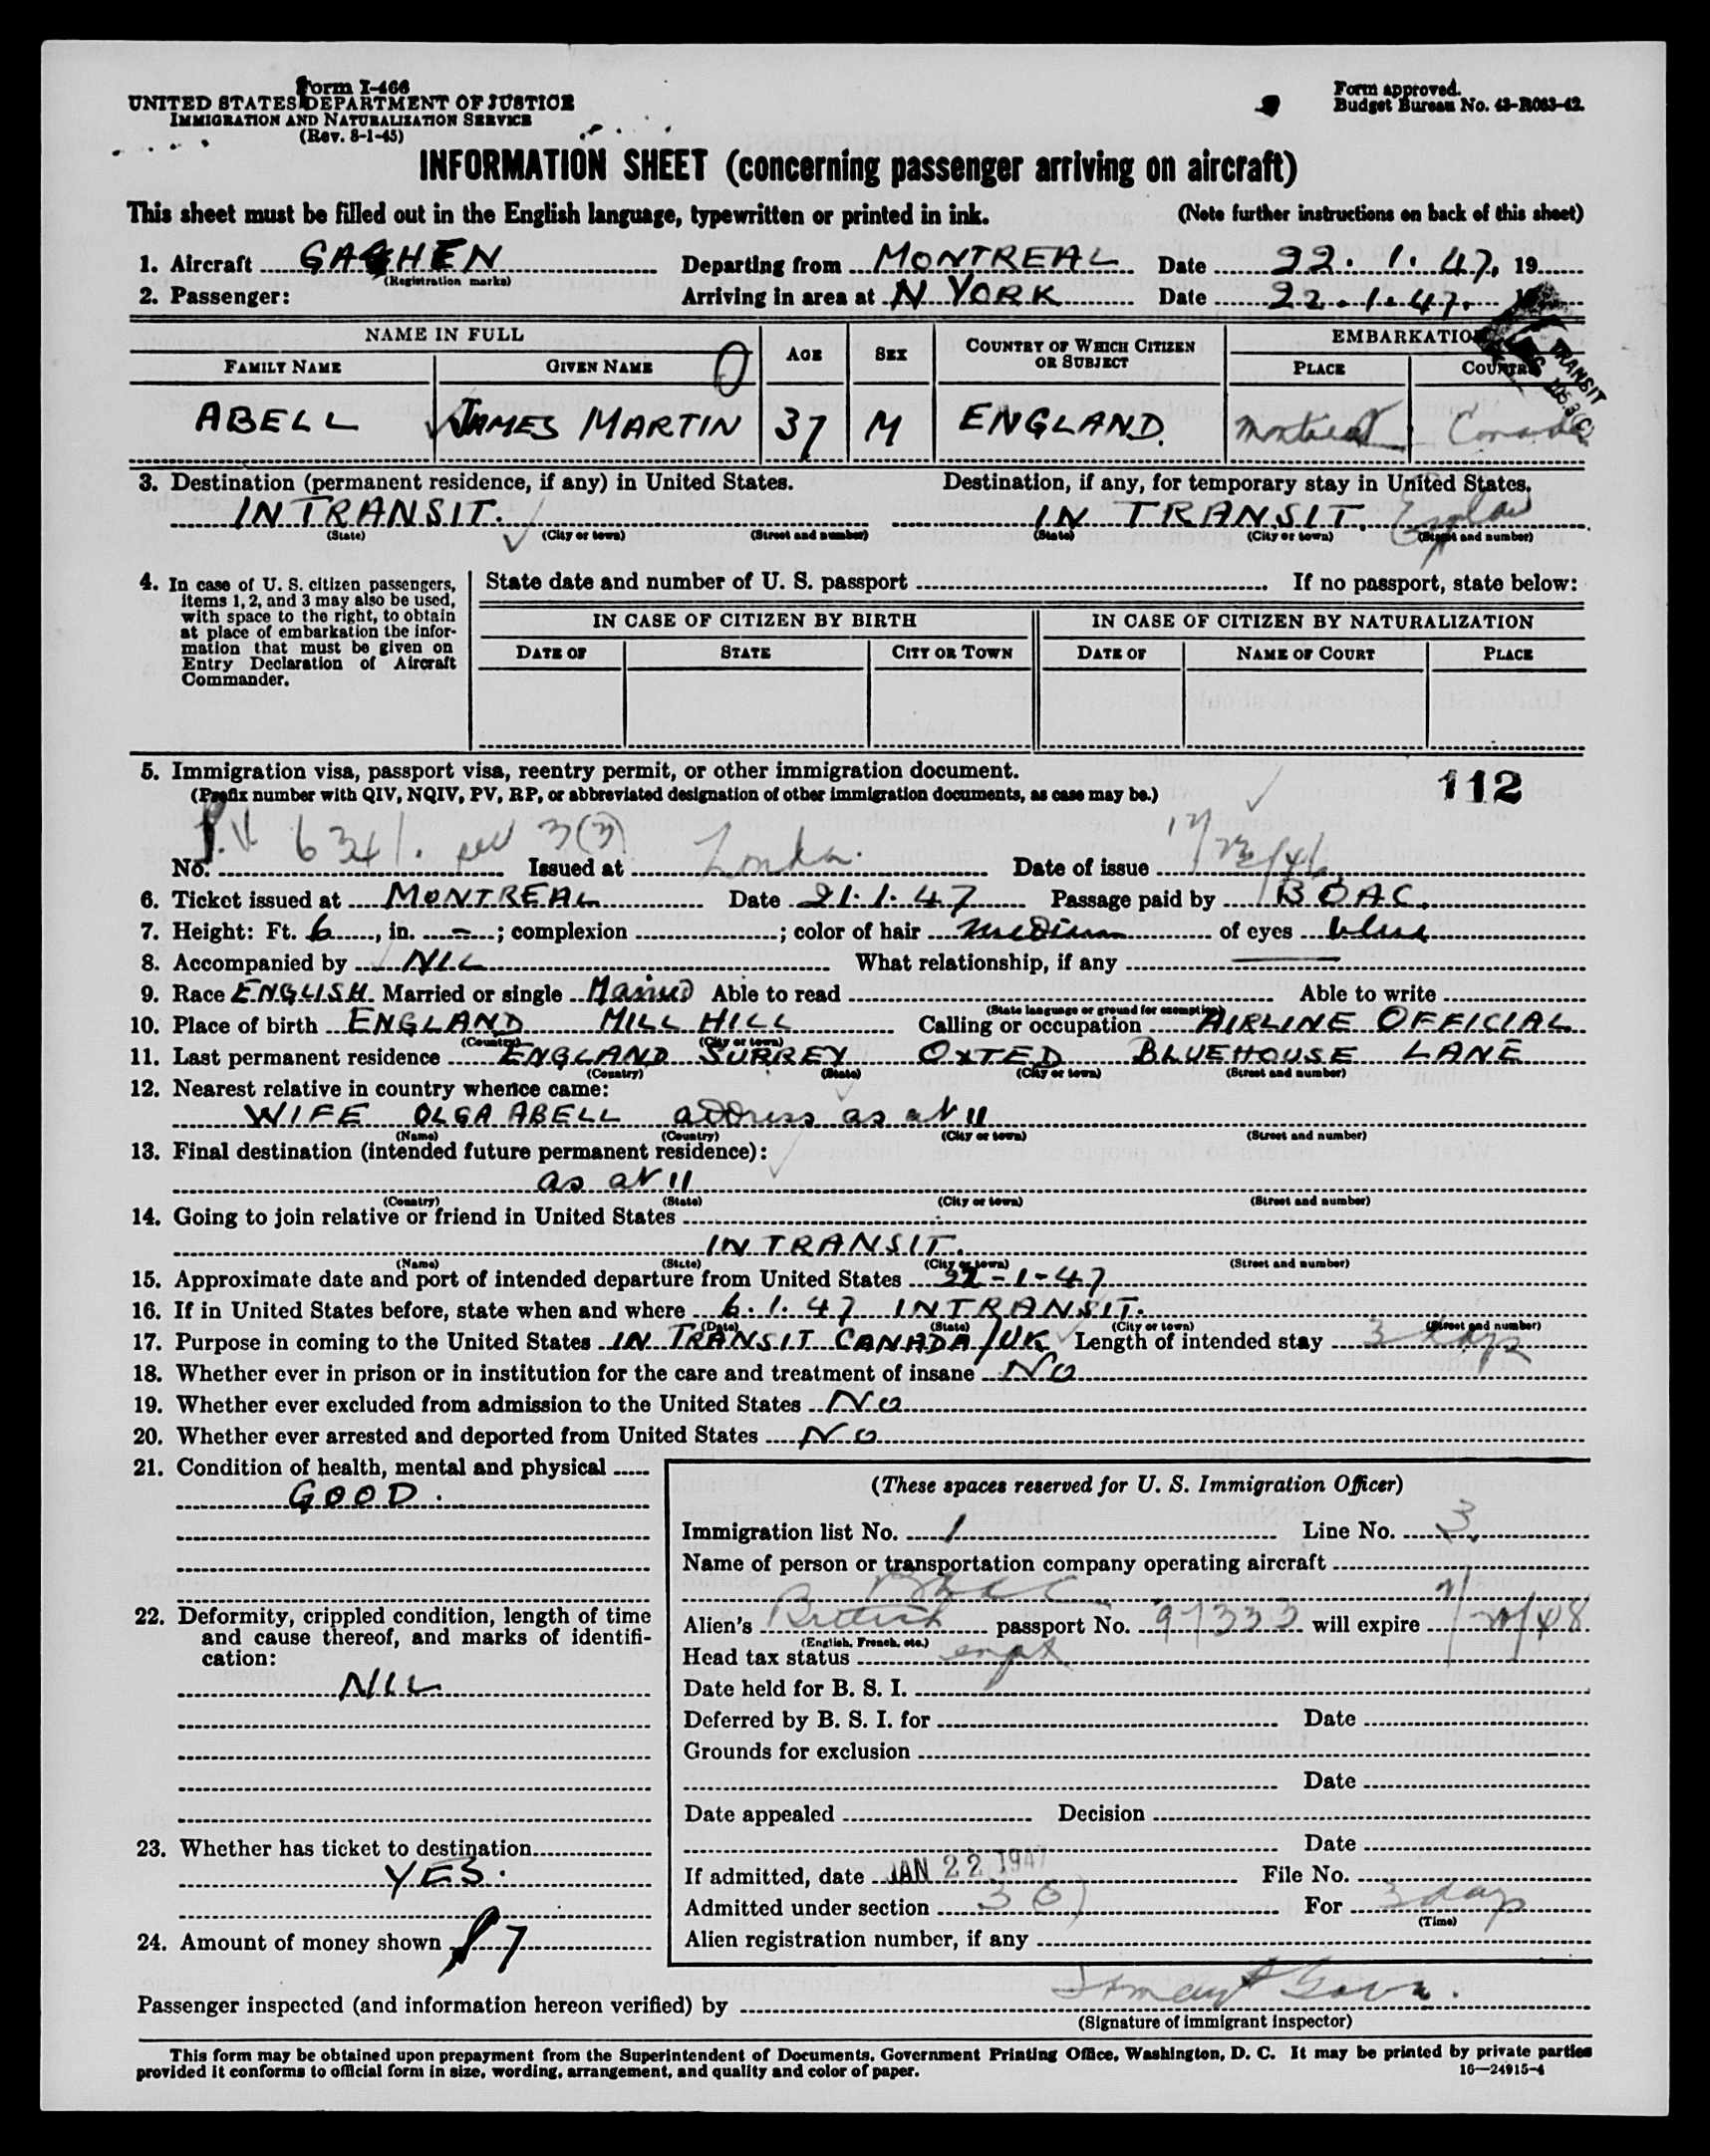 Form I-466
UNITED STATES DEPARTMENT OF JUSTICE
IMMIGRATION AND NATURALIZATION SERVICE
(Rev. 8-1-45)
Form approved.
Budget Bureau No. 43-R083-42.
INFORMATION SHEET (concerning passenger arriving on aircraft)
This sheet must be filled out in the English language, typewritten or printed in ink. (Note further instructions on back of this sheet)
1. Aircraft GAGHEN Departing from MONTREAL Date 22.1.47, 19
(Registration marks)
2. Passenger: Arriving in area at N YORK Date 22.1.47.
NAME IN FULL AGE SEX COUNTRY OF WHICH CITIZEN OR SUBJECT EMBARKATION
FAMILY NAME GIVEN NAME PLACE COUNTRY
TRANSIT
ABELL JAMES MARTIN 37 M ENGLAND. Montreal Canada
3. Destination (permanent residence, if any) in United States. Destination, if any, for temporary stay in United States.
IN TRANSIT. IN TRANSIT.
(State) (City or town) (Street and number) (State) (City or town) (Street and number)
4. In case of U. S. citizen passengers, items 1, 2, and 3 may also be used, with space to the right, to obtain at place of embarkation the information that must be given on Entry Declaration of Aircraft Commander.
State date and number of U. S. passport If no passport, state below:
IN CASE OF CITIZEN BY BIRTH IN CASE OF CITIZEN BY NATURALIZATION
DATE OF STATE CITY OR TOWN DATE OF NAME OF COURT PLACE
5. Immigration visa, passport visa, reentry permit, or other immigration document. 112
(Prefix number with QIV, NQIV, PV, RP, or abbreviated designation of other immigration documents, as case may be.)
No. P.V. 6341. 3(3) Issued at London. Date of issue 12/23/46
6. Ticket issued at MONTREAL Date 21.1.47 Passage paid by BOAC.
7. Height: Ft. 6, in. –; complexion ; color of hair medium of eyes blue
8. Accompanied by NIL What relationship, if any —
9. Race ENGLISH Married or single Married Able to read Able to write
(State language or ground for exemption)
10. Place of birth ENGLAND MILL HILL Calling or occupation AIRLINE OFFICIAL
(Country) (City or town)
11. Last permanent residence ENGLAND SURREY OXTED BLUEHOUSE LANE
(Country) (State) (City or town) (Street and number)
12. Nearest relative in country whence came:
WIFE OLGA ABELL address as at 11
(Name) (Country) (City or town) (Street and number)
13. Final destination (intended future permanent residence):
as at 11
(Country) (State) (City or town) (Street and number)
14. Going to join relative or friend in United States
IN TRANSIT.
(Name) (State) (City or town) (Street and number)
15. Approximate date and port of intended departure from United States 22-1-47
16. If in United States before, state when and where 6.1.47 IN TRANSIT.
(Date) (State) (City or town) (Street and number)
17. Purpose in coming to the United States IN TRANSIT CANADA/UK Length of intended stay 3 days
18. Whether ever in prison or in institution for the care and treatment of insane No
19. Whether ever excluded from admission to the United States No
20. Whether ever arrested and deported from United States No
21. Condition of health, mental and physical
GOOD.
22. Deformity, crippled condition, length of time and cause thereof, and marks of identification:
NIL
23. Whether has ticket to destination
YES.
24. Amount of money shown $7
(These spaces reserved for U. S. Immigration Officer)
Immigration list No. 1 Line No. 3
Name of person or transportation company operating aircraft
BOAC
Alien's British passport No. 97333 will expire
(English, French, etc.)
Head tax status
Date held for B. S. I.
Deferred by B. S. I. for Date
Grounds for exclusion
Date
Date appealed Decision
Date
If admitted, date JAN 22 1947 File No.
Admitted under section 3(3) For 3 days
(Time)
Alien registration number, if any
Passenger inspected (and information hereon verified) by
(Signature of immigrant inspector)
This form may be obtained upon prepayment from the Superintendent of Documents, Government Printing Office, Washington, D. C. It may be printed by private parties
provided it conforms to official form in size, wording, arrangement, and quality and color of paper. 16—24915-4